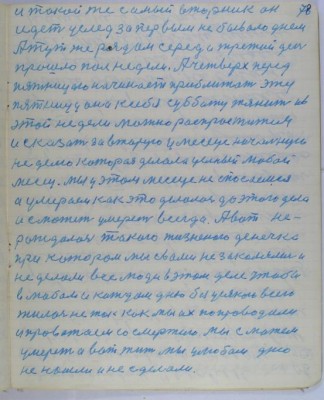 78
и такой же самый вторник он
идет услед за первым не бывало днем
А тут же рядом середа третий ден
прошло пол недели. А четверх перед
пятницою начинает приближат эту
пятницу она к себе субботу тянит
этой недели можно распроститися
и сказат за вторую у месеце начальную
неделю которая делала целый
месец. мы у этом месеце не спаслися
а умерали как это делалося до этого дела
и сможет умерет всегда. А вот не
рождалося такого жизненого денечка
при котором мы с вами не закалялися
не делали все люди в этом деле чтобы
в любом и каждом дню без усякого всего
жилося не так как мы их попроводили
и провожаем со смертию. мы сможем
умерет а вот жит мы у любом дню
не нашли и не сделали.